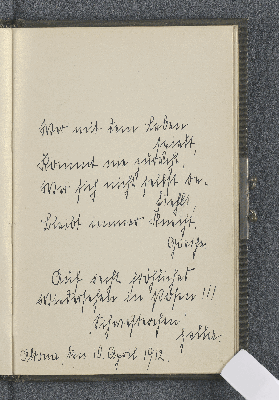 Wer mit dem Leben
spielt,
Kommt nie zurecht.
Wer sich nicht selbst be-
fiehlt,
Bleibt immer Knecht.
Goethe
Auf recht fröhliches
Wiedersehen in Posen !!!
Schwesterchen
den 18. April 1912.